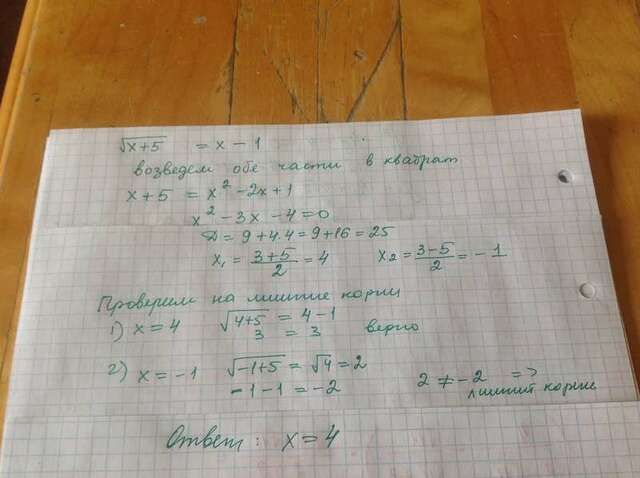 √x+5 = x − 1
возведем обе части в квадрат
x + 5 = x² − 2x + 1
x² − 3x − 4 = 0
D = 9 + 4·4 = 9 + 16 = 25
x₁ = (3+5)/2 = 4 x₂ = (3−5)/2 = −1
Проверим на лишние корни
1) x = 4 √4+5 = 4 − 1
3 = 3 верно
2) x = −1 √−1+5 = √4 = 2
−1 − 1 = −2 2 ≠ −2 =>
лишний корень
Ответ: x = 4